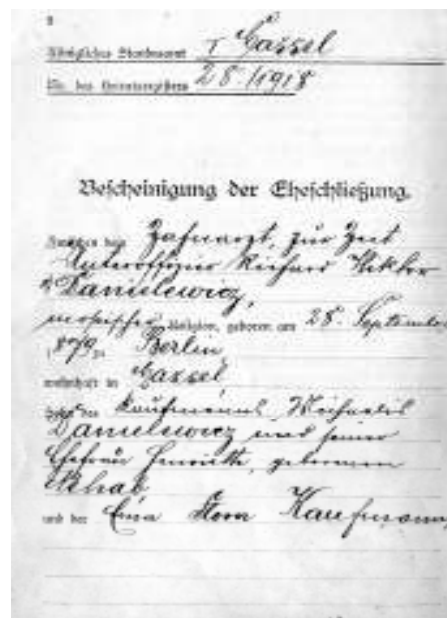 8
Königliches Standesamt I Cassel
Nr. des Heiratsregisters 28/1918
Bescheinigung der Eheschließung.
Zwischen dem Zahnarzt, zur Zeit
Unteroffizier Richard Viktor
Danielewicz,
mosaischer Religion, geboren am 28. September
1879 zu Berlin,
wohnhaft in Cassel,
Sohn des Kaufmanns Michaelis
Danielewicz und seiner
Ehefrau Henriette, geborenen
und der Erna Flora Kaufmann,